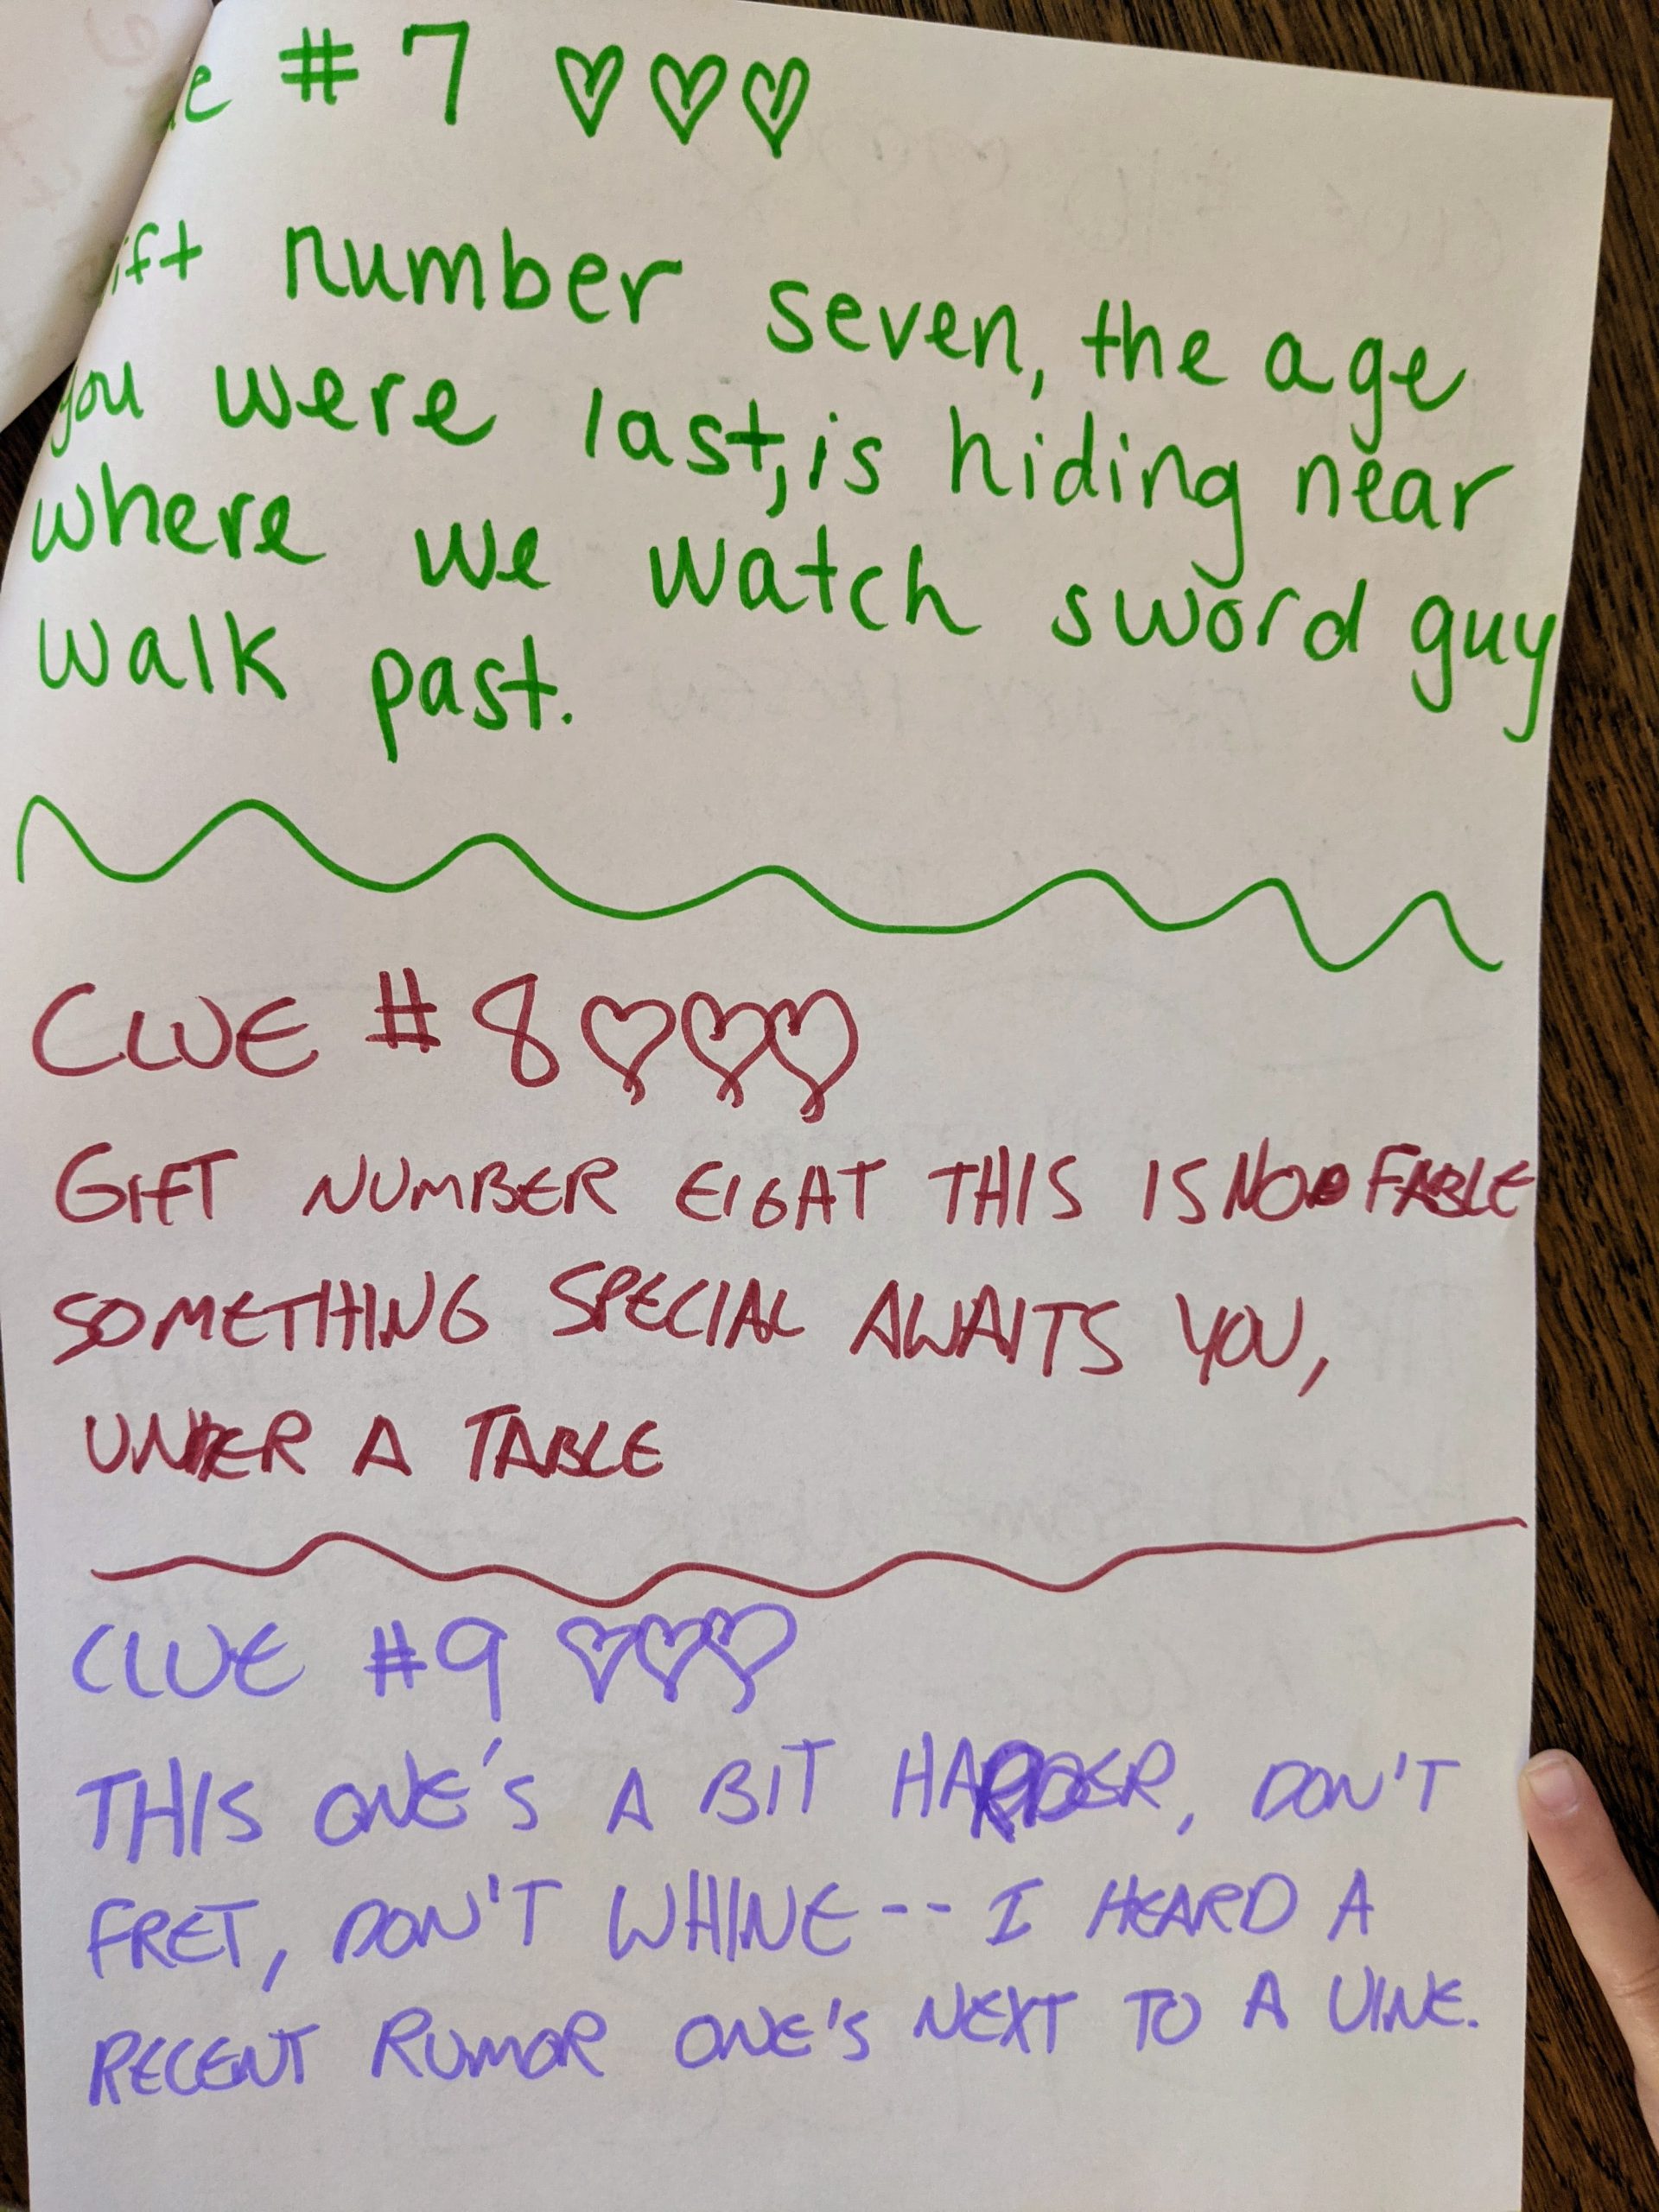 e # 7 ♡♡♡
ift number seven, the age
you were last, is hiding near
where we watch sword guy
walk past.
CLUE # 8 ♡♡♡
GIFT NUMBER EIGHT THIS IS NO FABLE
SOMETHING SPECIAL AWAITS YOU,
UNDER A TABLE
CLUE #9 ♡♡♡
THIS ONE'S A BIT HARDER, DON'T
FRET, DON'T WHINE -- I HEARD A
RECENT RUMOR ONE'S NEXT TO A VINE.